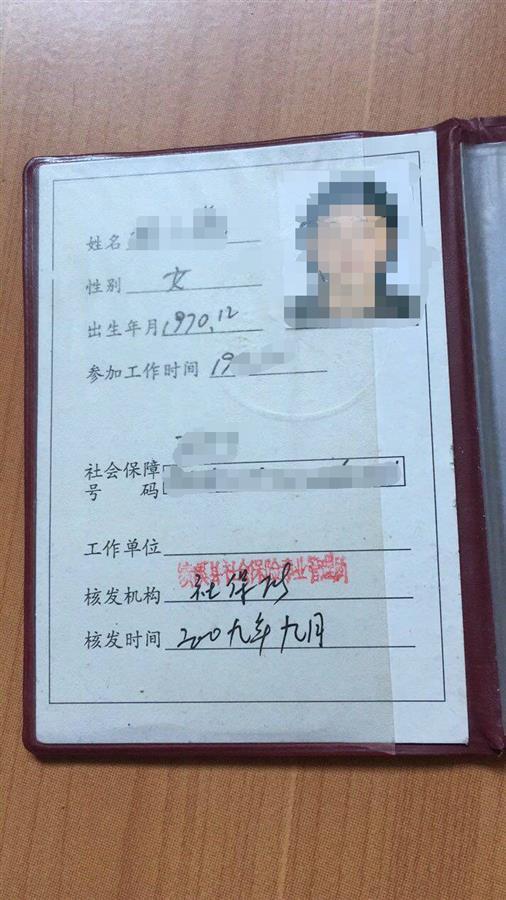 姓名
性别 女
出生年月 1970.12
参加工作时间 19
社会保障
号 码
工作单位
县社会保险事业管理
核发机构 社保所
核发时间 二00九年九月